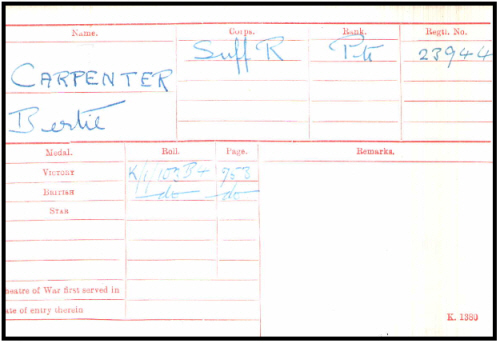 Name. Corps. Rank. Regtl. No.
CARPENTER Suff R Pte 23944
Bertie
Medal. Roll. Page. Remarks.
VICTORY K/1/103B4 953
BRITISH do do
STAR
heatre of War first served in
ate of entry therein
K. 1380